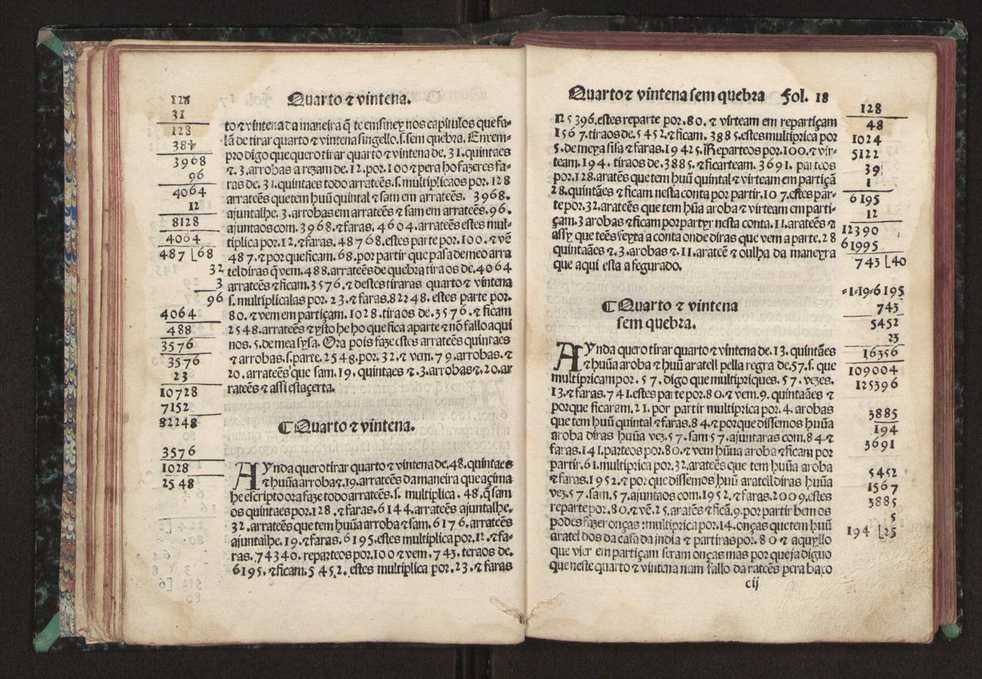 Quarto ⁊ vintena.
128
31
128
384
3968
96
4064
12
8128
4064
487 ⌊68
32
3
96
4064
488
3576
3576
23
10728
7152
82248
3576
1028
2548
to ⁊ vintena da maneira q̃ te ensiney nos capitulos que fa-
lã de tirar quarto ⁊ vintena singello.s.sem quebra. Enxem-
pro digo que quero tirar quarto ⁊ vintena de.31.quintaes
⁊.3.arrobas a rezam de.12.por.100 ⁊ pera ho fazeres fa-
ras de.31.quintaes todo arrateẽs.s.multiplicaos por.128
arrateẽs que tem huũ quintal ⁊ sam em arrateẽs. 3968.
ajuntalhe.3.arrobas em arrateẽs ⁊ sam em arrateẽs.96.
ajuntaos com.3968.⁊ faras.4604.arrateẽs estes mul-
tiplica por.12.⁊ faras.48768.estes parte por.100.⁊ vẽ
487.⁊ por que ficam.68.por partir que passa de meo arra
tel diras q̃ vem.488.arrateẽs de quebra tira os de.4064
arrateẽs ⁊ ficam.3576.⁊ destes tiraras quarto ⁊ vintena
s.multiplicalas por.23.⁊ faras.82248.estes parte por.
80.⁊ vem em partiçam.1028.tiraos de.3576.⁊ ficam
2548.arrateẽs ⁊ ysto he ho que fica aparte ⁊ nõ fallo aqui
nos.5.de mea sysa. Ora pois faze estes arrateẽs quintaes
⁊ arrobas.s.parte.2548.por.32.⁊ vem.79.arrobas.⁊
20.arrateẽs que sam.19.quintaes ⁊.3.arrobas ⁊.20.ar
rateẽs ⁊ assi esta çerta.
☾Quarto ⁊ vintena.
AYnda quero tirar quarto ⁊ vintena de.48.quintaes
⁊ huũa arroba ⁊.19.arrateẽs da maneira que açima
he escripto ora faze todo arrateẽs.s.multiplica.48.q̃ sam
os quintaes por.128.⁊ faras.6144.arrateẽs ajuntalhe.
32.arrateẽs que tem huũa arroba ⁊ sam.6176.arrateẽs
ajuntalhe.19.⁊ faras.6195.estes multiplica por.12.⁊ fa-
ras.74340.reparteos por.100 ⁊ vem.743.teraos de.
6195.⁊ ficam.5452.estes multiplica por.23.⁊ faras
Quarto ⁊ vintena sem quebra Fol. 18
125396.estes reparte por.80.⁊ virteam em repartiçam
1567.tiraos de.5452.⁊ ficam.3885.estes multiprica por
5.de meya sisa ⁊ faras.19425.Reparteos por.100 ⁊ vir-
team.194.tiraos de.3885.⁊ ficarteam.3691.parteos
por.128.arateẽs que tem huũ quintal ⁊ virteam em partiçã
28.quintaẽs ⁊ ficam nesta conta por partir.107.estes par-
te por.32.arateẽs que tem hũa aroba ⁊ virteam em parti-
çam.3 arobas ⁊ ficam por partyr nesta conta.11.arateẽs ⁊
assy que teẽs feyta a conta onde diras que vem a parte.28
quintaães ⁊.3.arobas ⁊.11.arateẽ ⁊ oulha da maneyra
que aqui esta afegurado.
☾Quarto ⁊ vintena
sem quebra.
AYnda quero tirar quarto ⁊ vintena de.13.quintães
⁊ huũa aroba ⁊ huũ aratell pella regra de.57.s.que
multipricam por.57.digo que multipriques.57.vezes.
13.⁊ faras.741.estes parte por.80.⁊ vem.9.quintaães ⁊
porque ficaram.21.por partir multiprica por.4.arobas
que tem huũ quintal ⁊ faras.84.⁊ porque dissemos huũa
aroba diras huũa vez.57.sam 57.ajuntaras com.84.⁊
faras.141.parteos por.80.⁊ vem huũa aroba ⁊ ficam por
partir.61.multiprica por.32.arateẽs que tem huũa aroba
⁊ faras.1952.⁊ por que dissemos huũ aratell diras huũa
vez.57.sam.57.ajuntaos com.1952.⁊ faras.2009.estes
reparte por.80.⁊ vẽ.25.aratẽs ⁊ ficã.9.por partir bem os
podes fazer onças ⁊ multiprica por.14.onças que tem huũ
aratel dos da casa da india ⁊ partiras por.80 ⁊ aquyllo
que vier em partiçam seram onças mas por que ja diguo
que neste quarto ⁊ vintena nam fallo da rateẽs pera baço
cij
128
48
1024
5122
39
1
6195
12
12390
61995
743 ⌊40
6195
743
5452
23
16356
109004
125396
3885
194
3691
5452
1567
3885
5
194 ⌊25